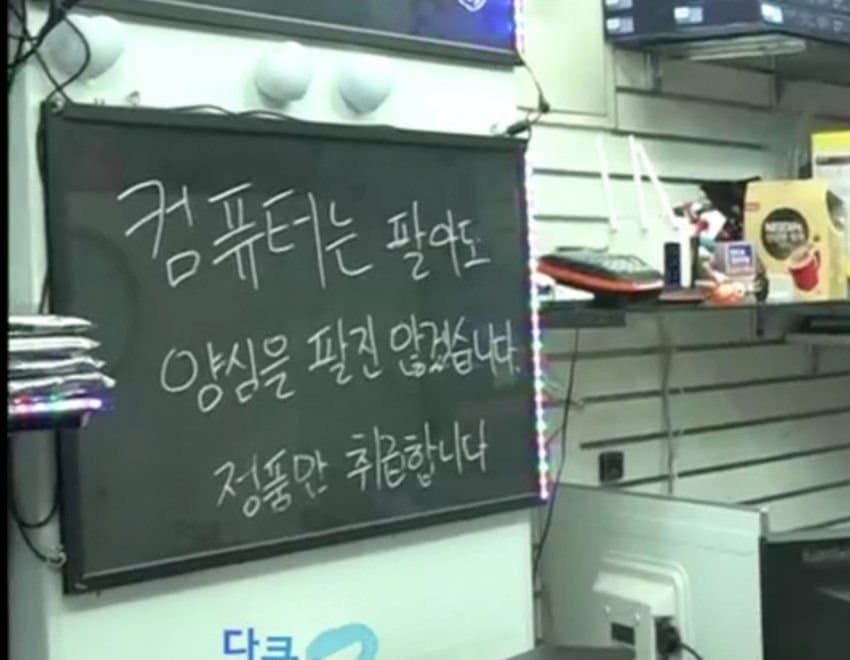 컴퓨터는 팔아도
양심을 팔진 않겠습니다.
정품만 취급합니다
NESCAFÉ
다크